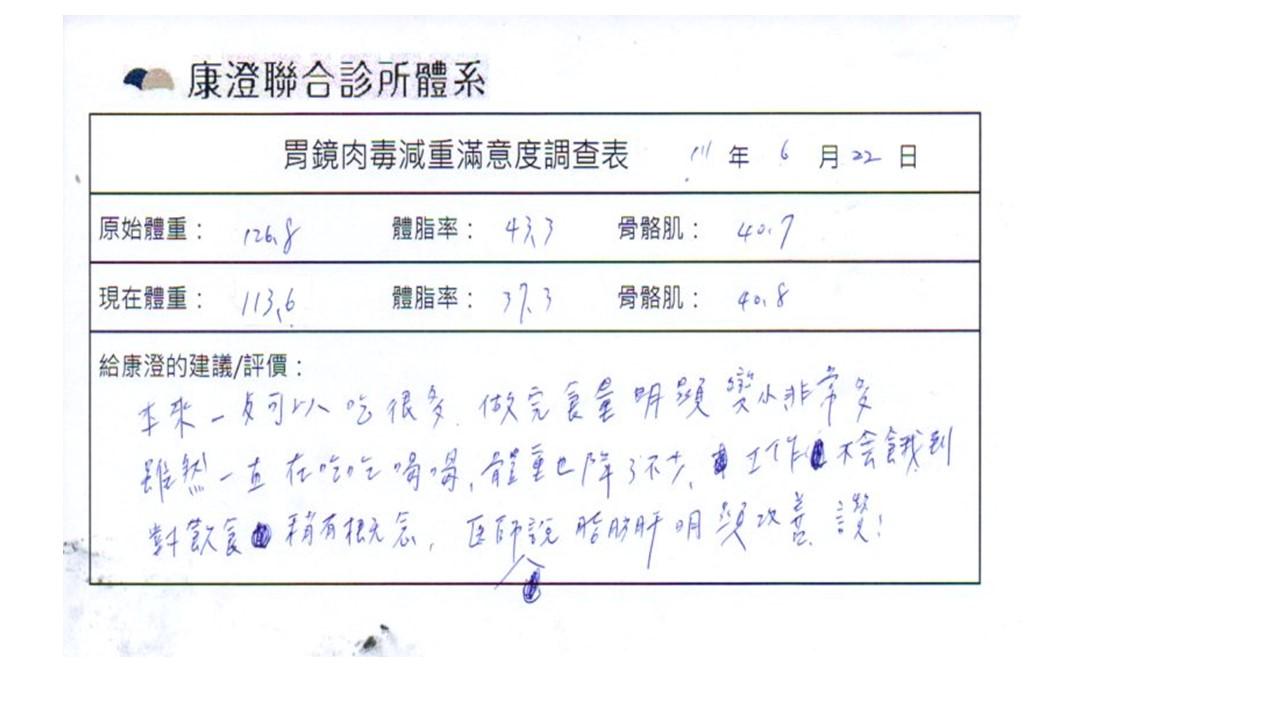 康澄聯合診所體系
胃鏡肉毒減重滿意度調查表 111 年 6 月 22 日
原始體重： 126.8 體脂率： 43.3 骨骼肌： 40.7
現在體重： 113.6 體脂率： 37.3 骨骼肌： 40.8
給康澄的建議/評價：
本來一直可以吃很多. 做完食量明顯變小非常多
雖然一直在吃吃喝喝, 體重也降了不少, 工作不会餓到
對飲食稍有概念, 医師說脂肪肝明顯改善. 讚!